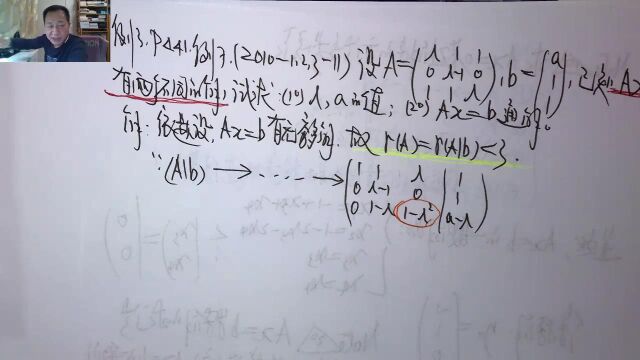 例3. P441. 例3. (2010-1,2,3-11) 设 A = (λ 1 1; 0 λ-1 0; 1 1 λ), b = (a; 1; 1), 已知 Ax
有两个不同的解, 试求: (1°) λ, a的值; (2°) Ax=b通解。
解: 依题设, Ax=b有无穷解. 故 r(A)=r(A|b)<3.
∵ (A|b) → ...... → (1 1 λ | 1; 0 λ-1 0 | 1; 0 1-λ 1-λ² | a-λ)